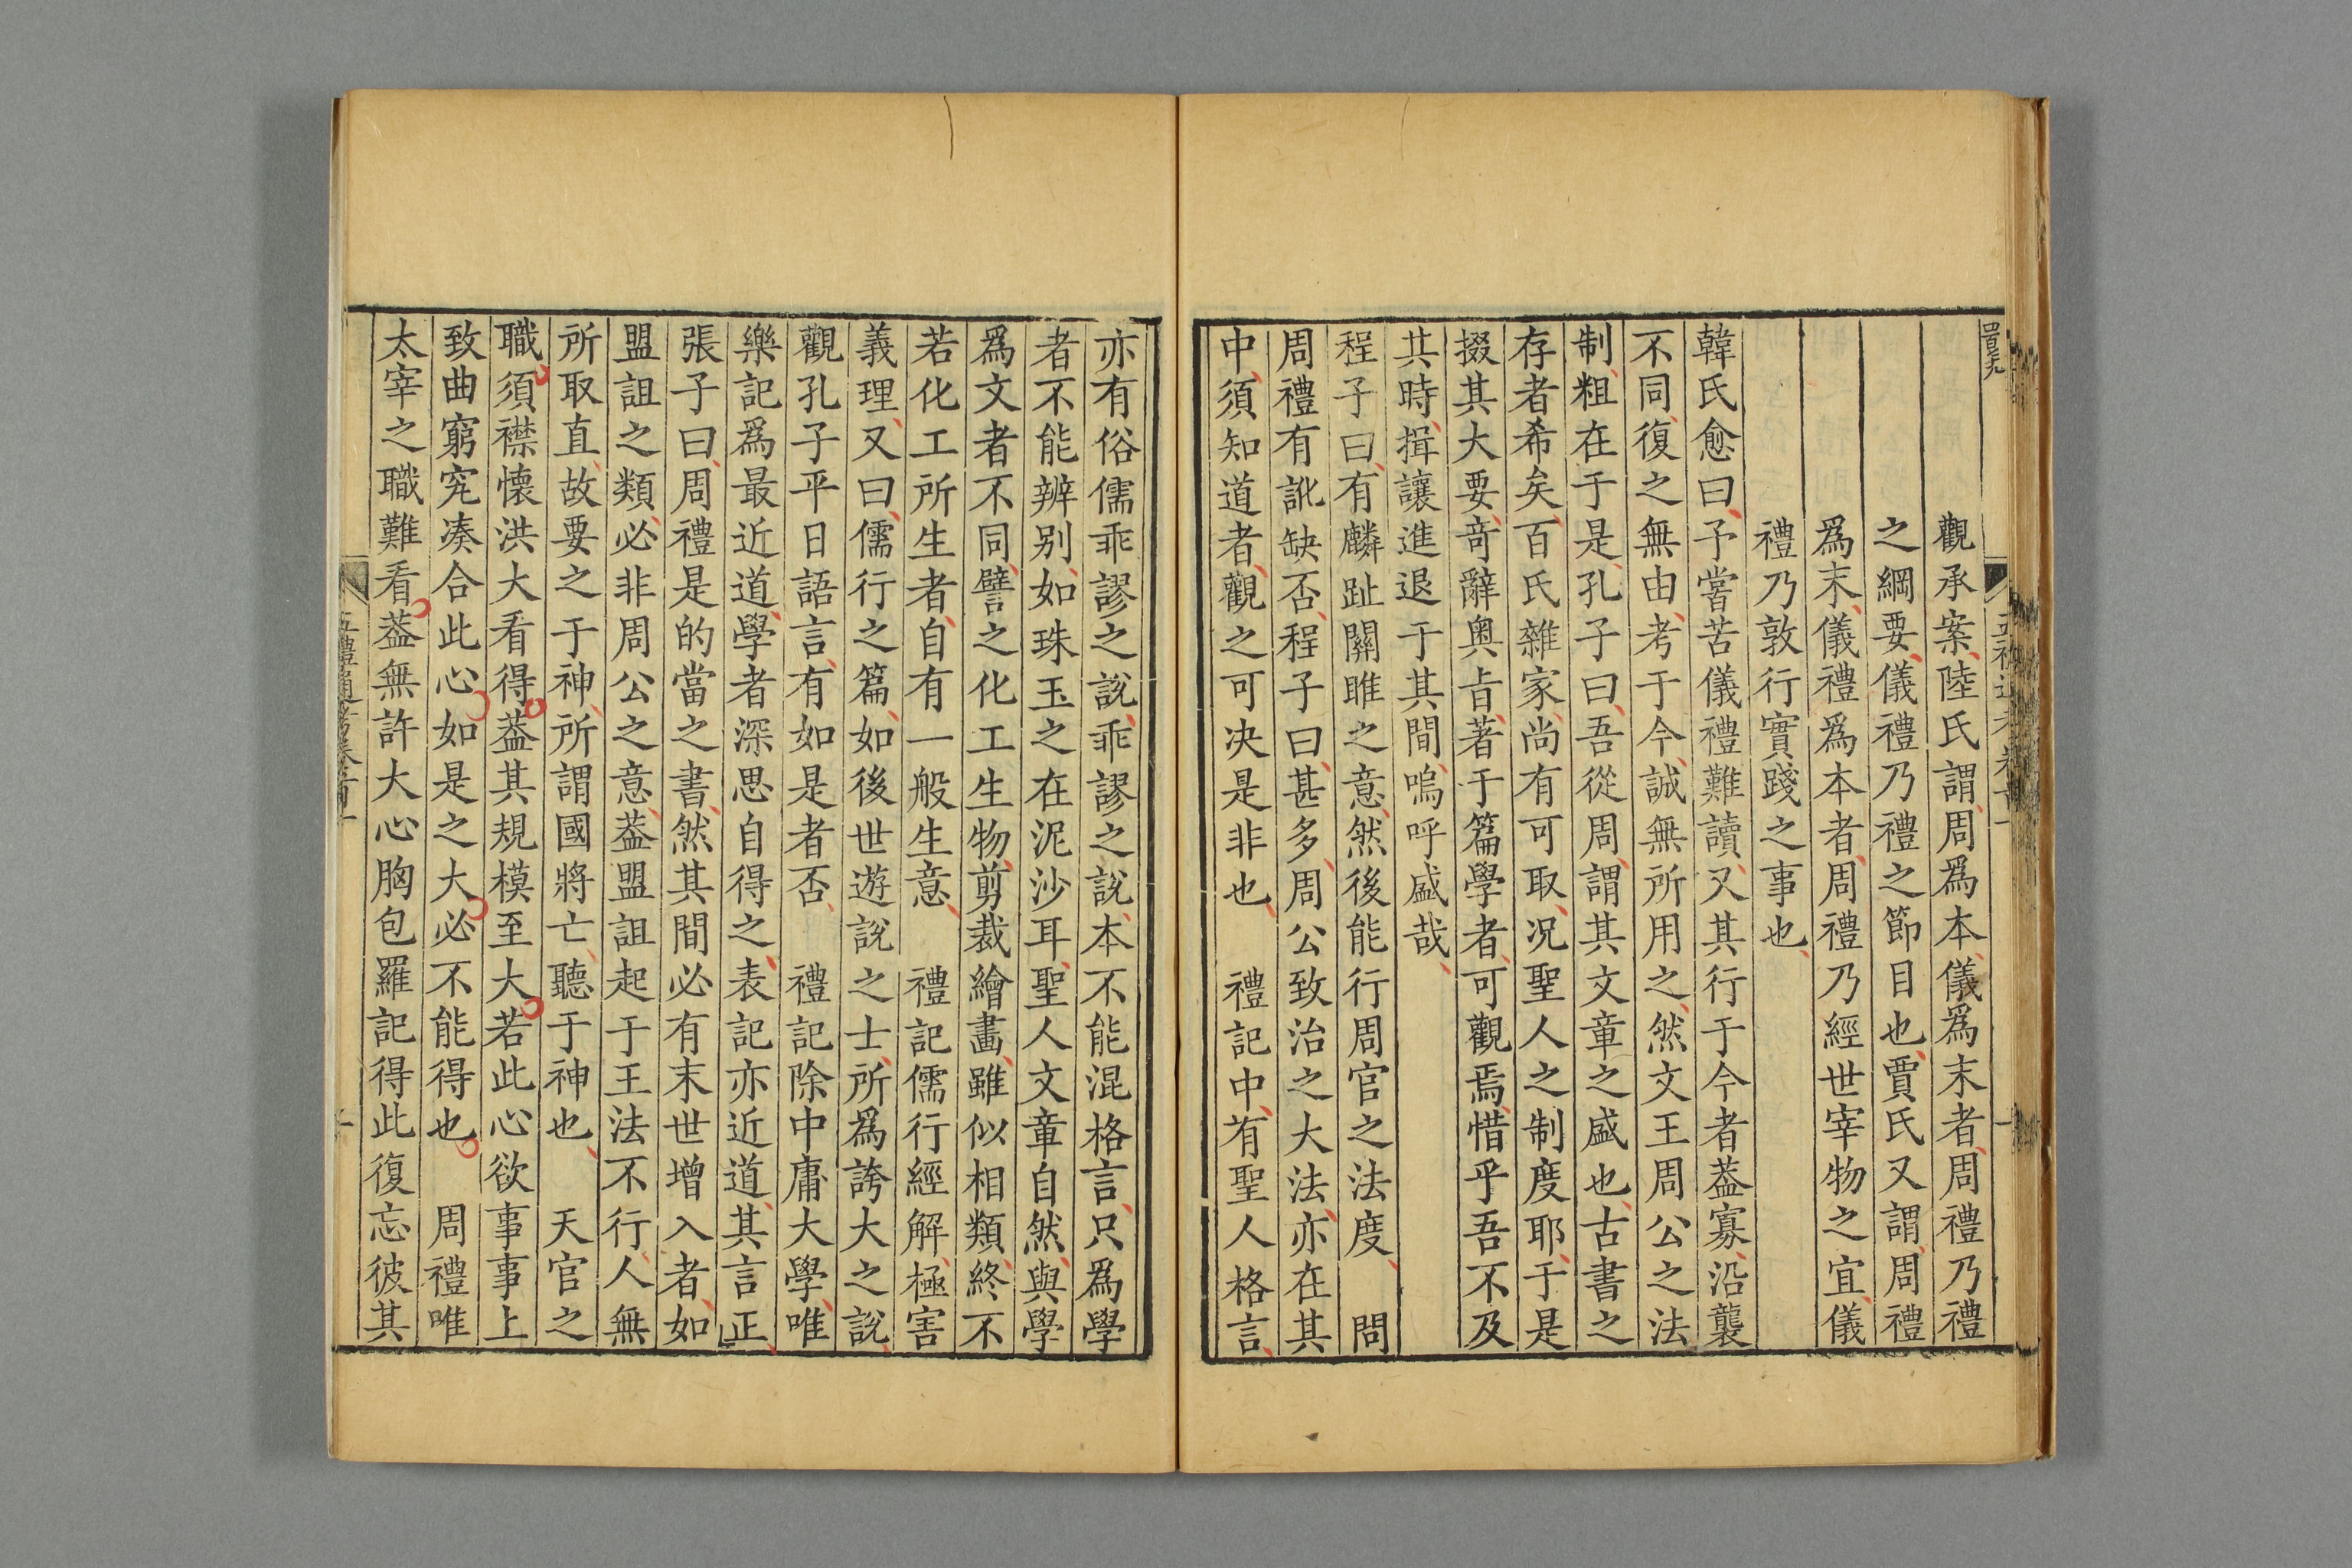 觀承案陸氏謂周爲本儀爲末者周禮乃禮
之綱要儀禮乃禮之節目也賈氏又謂周禮
爲末儀禮爲本者周禮乃經世宰物之宜儀
禮乃敦行實踐之事也
韓氏愈曰予嘗苦儀禮難讀又其行于今者葢寡沿襲
不同復之無由考于今誠無所用之然文王周公之法
制粗在于是孔子曰吾從周謂其文章之盛也古書之
存者希矣百氏雜家尚有可取况聖人之制度耶于是
掇其大要奇辭奥㫖著于篇學者可觀焉惜乎吾不及
其時揖讓進退于其間嗚呼盛哉
程子曰有麟趾關雎之意然後能行周官之法度　問
周禮有訛缺否程子曰甚多周公致治之大法亦在其
中須知道者觀之可决是非也　禮記中有聖人格言
亦有俗儒乖謬之說乖謬之說本不能混格言只爲學
者不能辨别如珠玉之在泥沙耳聖人文章自然與學
爲文者不同譬之化工生物剪裁繪畵雖似相類終不
若化工所生者自有一般生意　禮記儒行經解極害
義理又曰儒行之篇如後世遊說之士所爲誇大之說
觀孔子平日語言有如是者否　禮記除中庸大學唯
樂記爲最近道學者深思自得之表記亦近道其言正
張子曰周禮是的當之書然其間必有末世增入者如
盟詛之類必非周公之意葢盟詛起于王法不行人無
所取直故要之于神所謂國將亡聽于神也　天官之
職須襟懐洪大看得葢其規模至大若此心欲事事上
致曲窮究凑合此心如是之大必不能得也　周禮唯
太宰之職難看葢無許大心胸包羅記得此復忘彼其
五禮通考卷首一